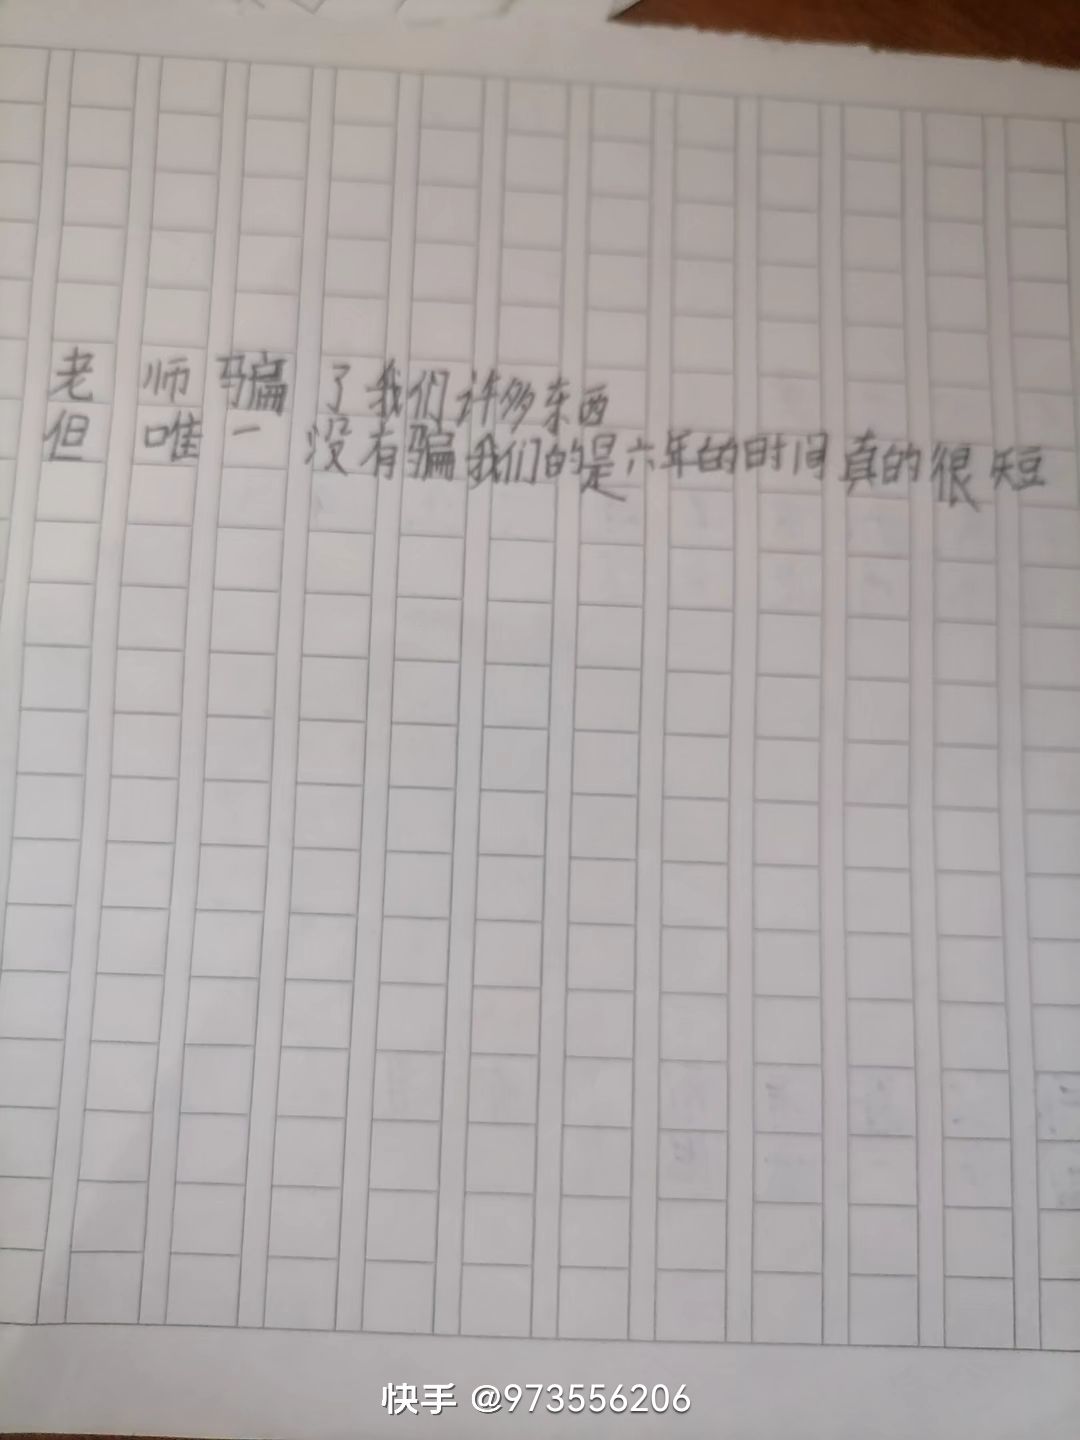 老师骗了我们许多东西
但唯一没有骗我们的是六年的时间真的很短
快手 @973556206